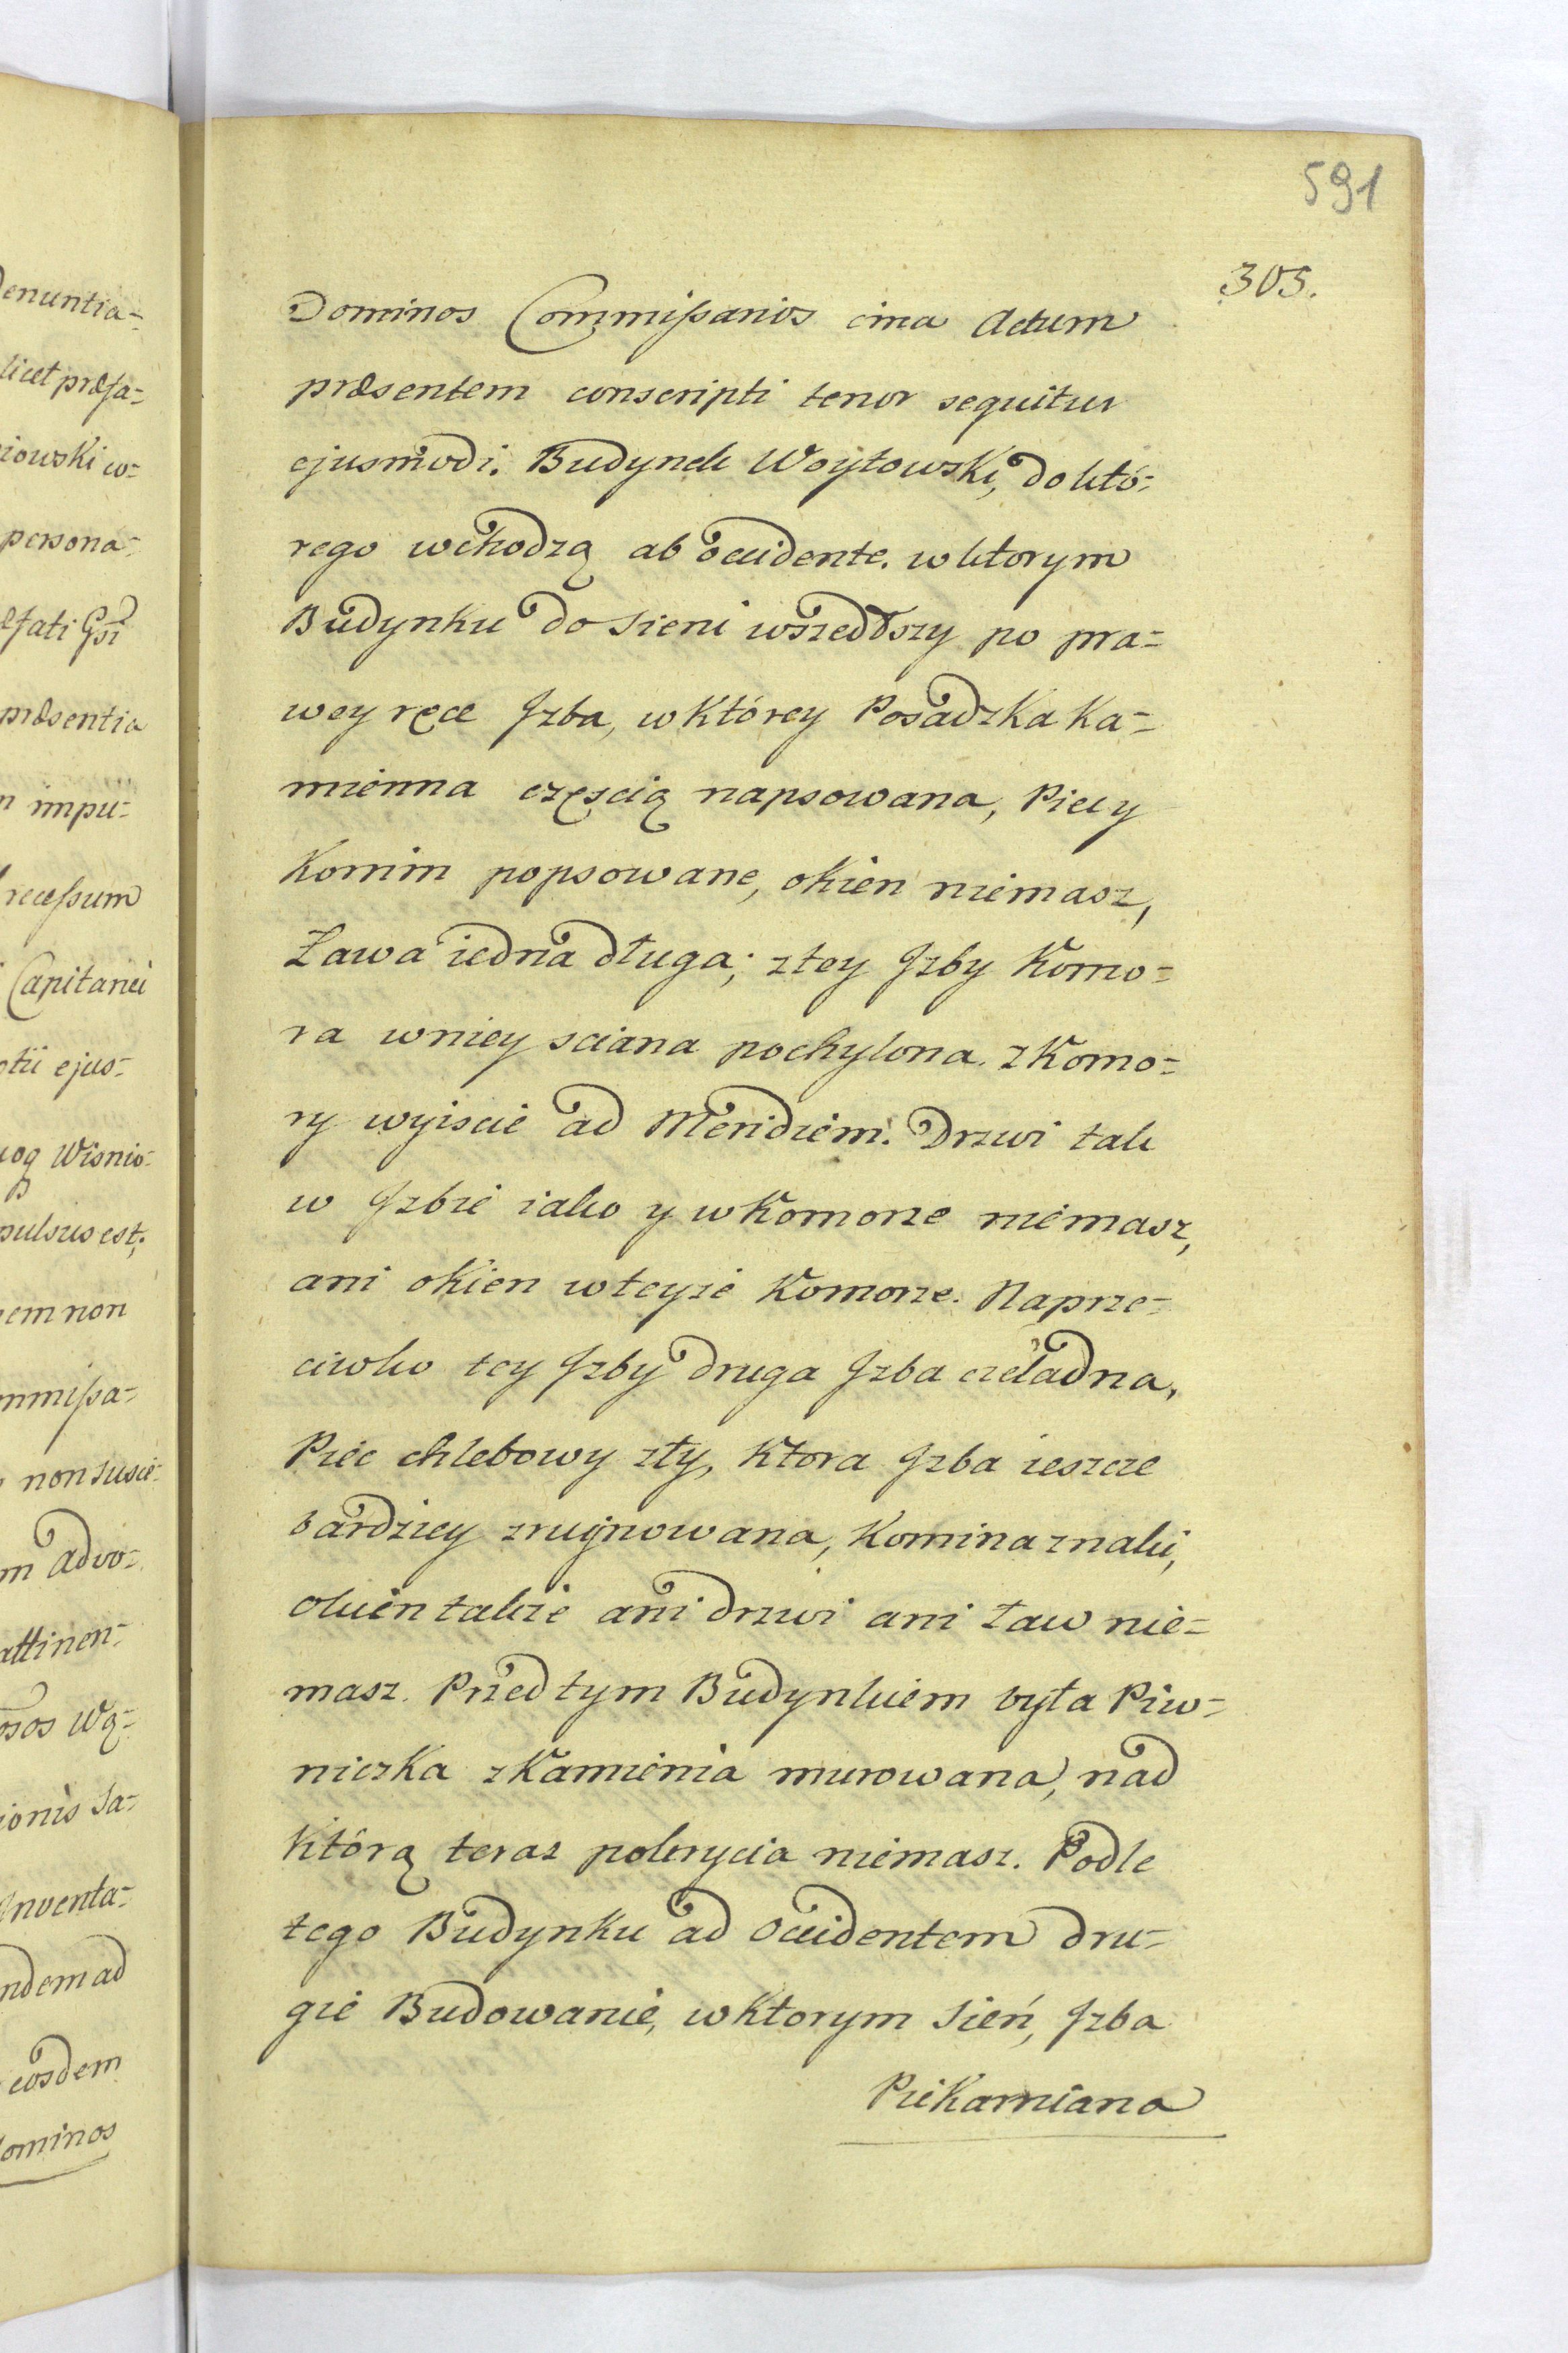 591
305.
Dominos Commissarios circa Actum
præsentem conscripti tenor sequitur
ejusmodi. Budynek Woytowski, do któ=
rego wchodzą ab occidente. w ktorym
Budynku do Sieni wszedłszy po pra=
wey ręce Jzba, w którey Posadzka Ka=
mienna częscią napsowana, Piec y
Komin popsowane, okien niemasz,
Ława iedna długa; z tey Jzby Komo=
ra w niey sciana pochylona. z Komo=
ry wyiscie ad Meridiem. Drzwi tak
w Jzbie iako y w Komorze niemasz,
ani okien w teyze Komorze. Naprze=
ciwko tey Jzby druga Jzba czeladna,
Piec chlebowy zły, Ktora Jzba ieszcze
bardziey zruynowana, Komina znaki,
okien takze ani drzwi ani ław nie=
masz. Przed tym Budynkiem była Piw=
niczka z Kamienia murowana, nad
którą teraz pokrycia niemasz. Podle
tego Budynku ad Occidentem dru=
gie Budowanie, w Ktorym Sień, Jzba
Piekarniana
enuntia=
licet præfa=
iowski w=
persona=
fati Gsi
præsentia
impu=
recessum
Capitanei
ejus=
Wisnio=
pulsus est;
em non
mmissa=
non susce=
m advo=
attinen=
sos Wą=
ionis Sa=
Jnventa=
ndem ad
eosdem
Dominos